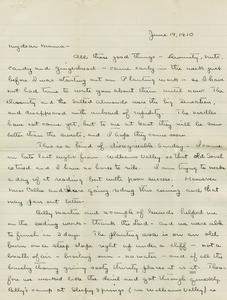 June 19, 1910
My dear Mama -
All those good things - Divinity, nuts,
candy and gingerbread - came early in the week just
before I was starting out on Planting work - so I have
not had time to write you about them until now. The
Divinity and the salted almonds were the big sensation,
and disappeared with unheard of rapidity. The
have not come yet, but to me at least they will be even
better than the sweets, and I hope they come soon.
This was a kind of disagreeable Sunday - I came
in late last night from Williams Valley so that
so tired as I have no bones to ride. I am trying to make
a day of it reading but with poor success. However
and are going riding this coming and that
may pan out better.
and a couple of Guards helped me
on the seeding work - thank the Lord - and we were able
to finish in 3 days. The planting area is an old
burn on a steep slope right up under a cliff - not a
breath of air - no water - and of all the
sixty thirsty places it is. Those
four us worked like the and got through quickly.
camp at Sleepy Springs (in Williams Valley) is